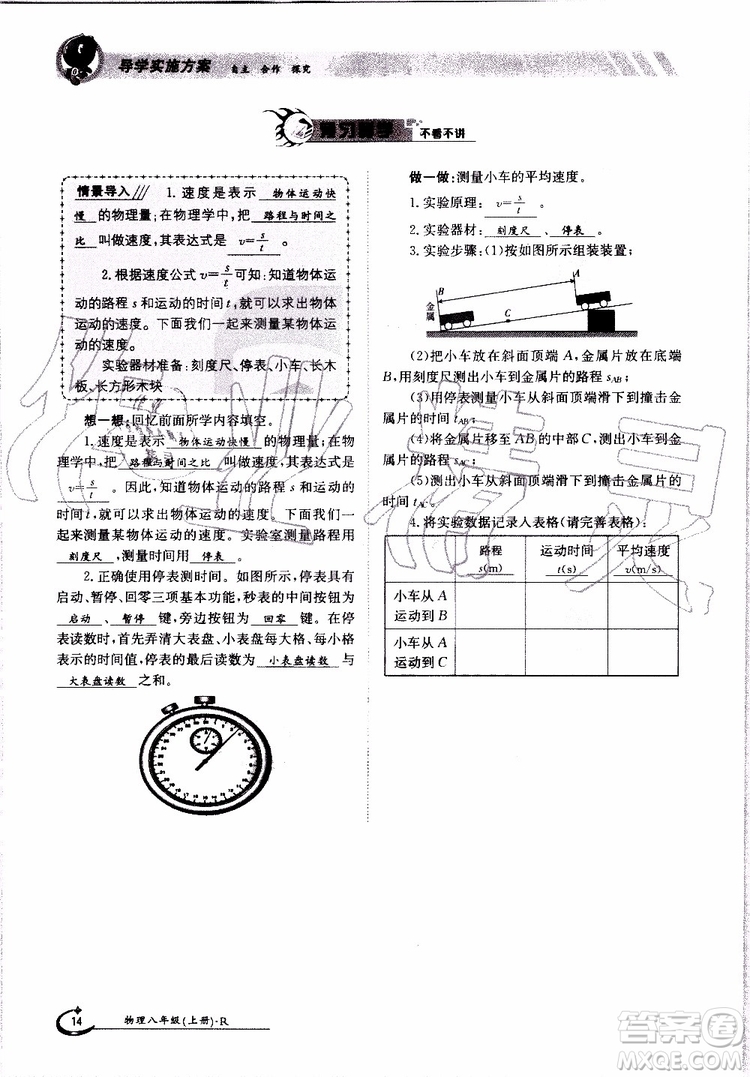 导学实施方案 自主 合作 探究
预习导学 不看不讲
情景导入 1. 速度是表示 物体运动快
慢 的物理量；在物理学中，把 路程与时间之
比 叫做速度，其表达式是 v=s/t 。
2. 根据速度公式 v=s/t 可知：知道物体运
动的路程 s 和运动的时间 t，就可以求出物体
运动的速度。下面我们一起来测量某物体运
动的速度。
实验器材准备：刻度尺、停表、小车、长木
板、长方形木块
想一想：回忆前面所学内容填空。
1. 速度是表示 物体运动快慢 的物理量；在物
理学中，把 路程与时间之比 叫做速度，其表达式是
v=s/t 。因此，知道物体运动的路程 s 和运动的
时间 t，就可以求出物体运动的速度。下面我们一
起来测量某物体运动的速度。实验室测量路程用
刻度尺 ，测量时间用 停表 。
2. 正确使用停表测时间。如图所示，停表具有
启动、暂停、回零三项基本功能，秒表的中间按钮为
启动 、 暂停 键，旁边按钮为 回零 键。在停
表读数时，首先弄清大表盘、小表盘每大格、每小格
表示的时间值，停表的最后读数为 小表盘读数 与
大表盘读数 之和。
做一做：测量小车的平均速度。
1. 实验原理： v=s/t 。
2. 实验器材： 刻度尺 、 停表 。
3. 实验步骤：(1)按如图所示组装装置；
B A
金
属 C
(2)把小车放在斜面顶端 A，金属片放在底端
B，用刻度尺测出小车到金属片的路程 sAB；
(3)用停表测量小车从斜面顶端滑下到撞击金
属片的时间 tAB；
(4)将金属片移至 AB 的中部 C，测出小车到金
属片的路程 sAC；
(5)测出小车从斜面顶端滑下到撞击金属片的
时间 tAC。
4. 将实验数据记录人表格(请完善表格)：
路程 运动时间 平均速度
s(m) t(s) v(m/s)
小车从 A
运动到 B
小车从 A
运动到 C
14 物理八年级(上册)·R
答案圈
MXQE.COM